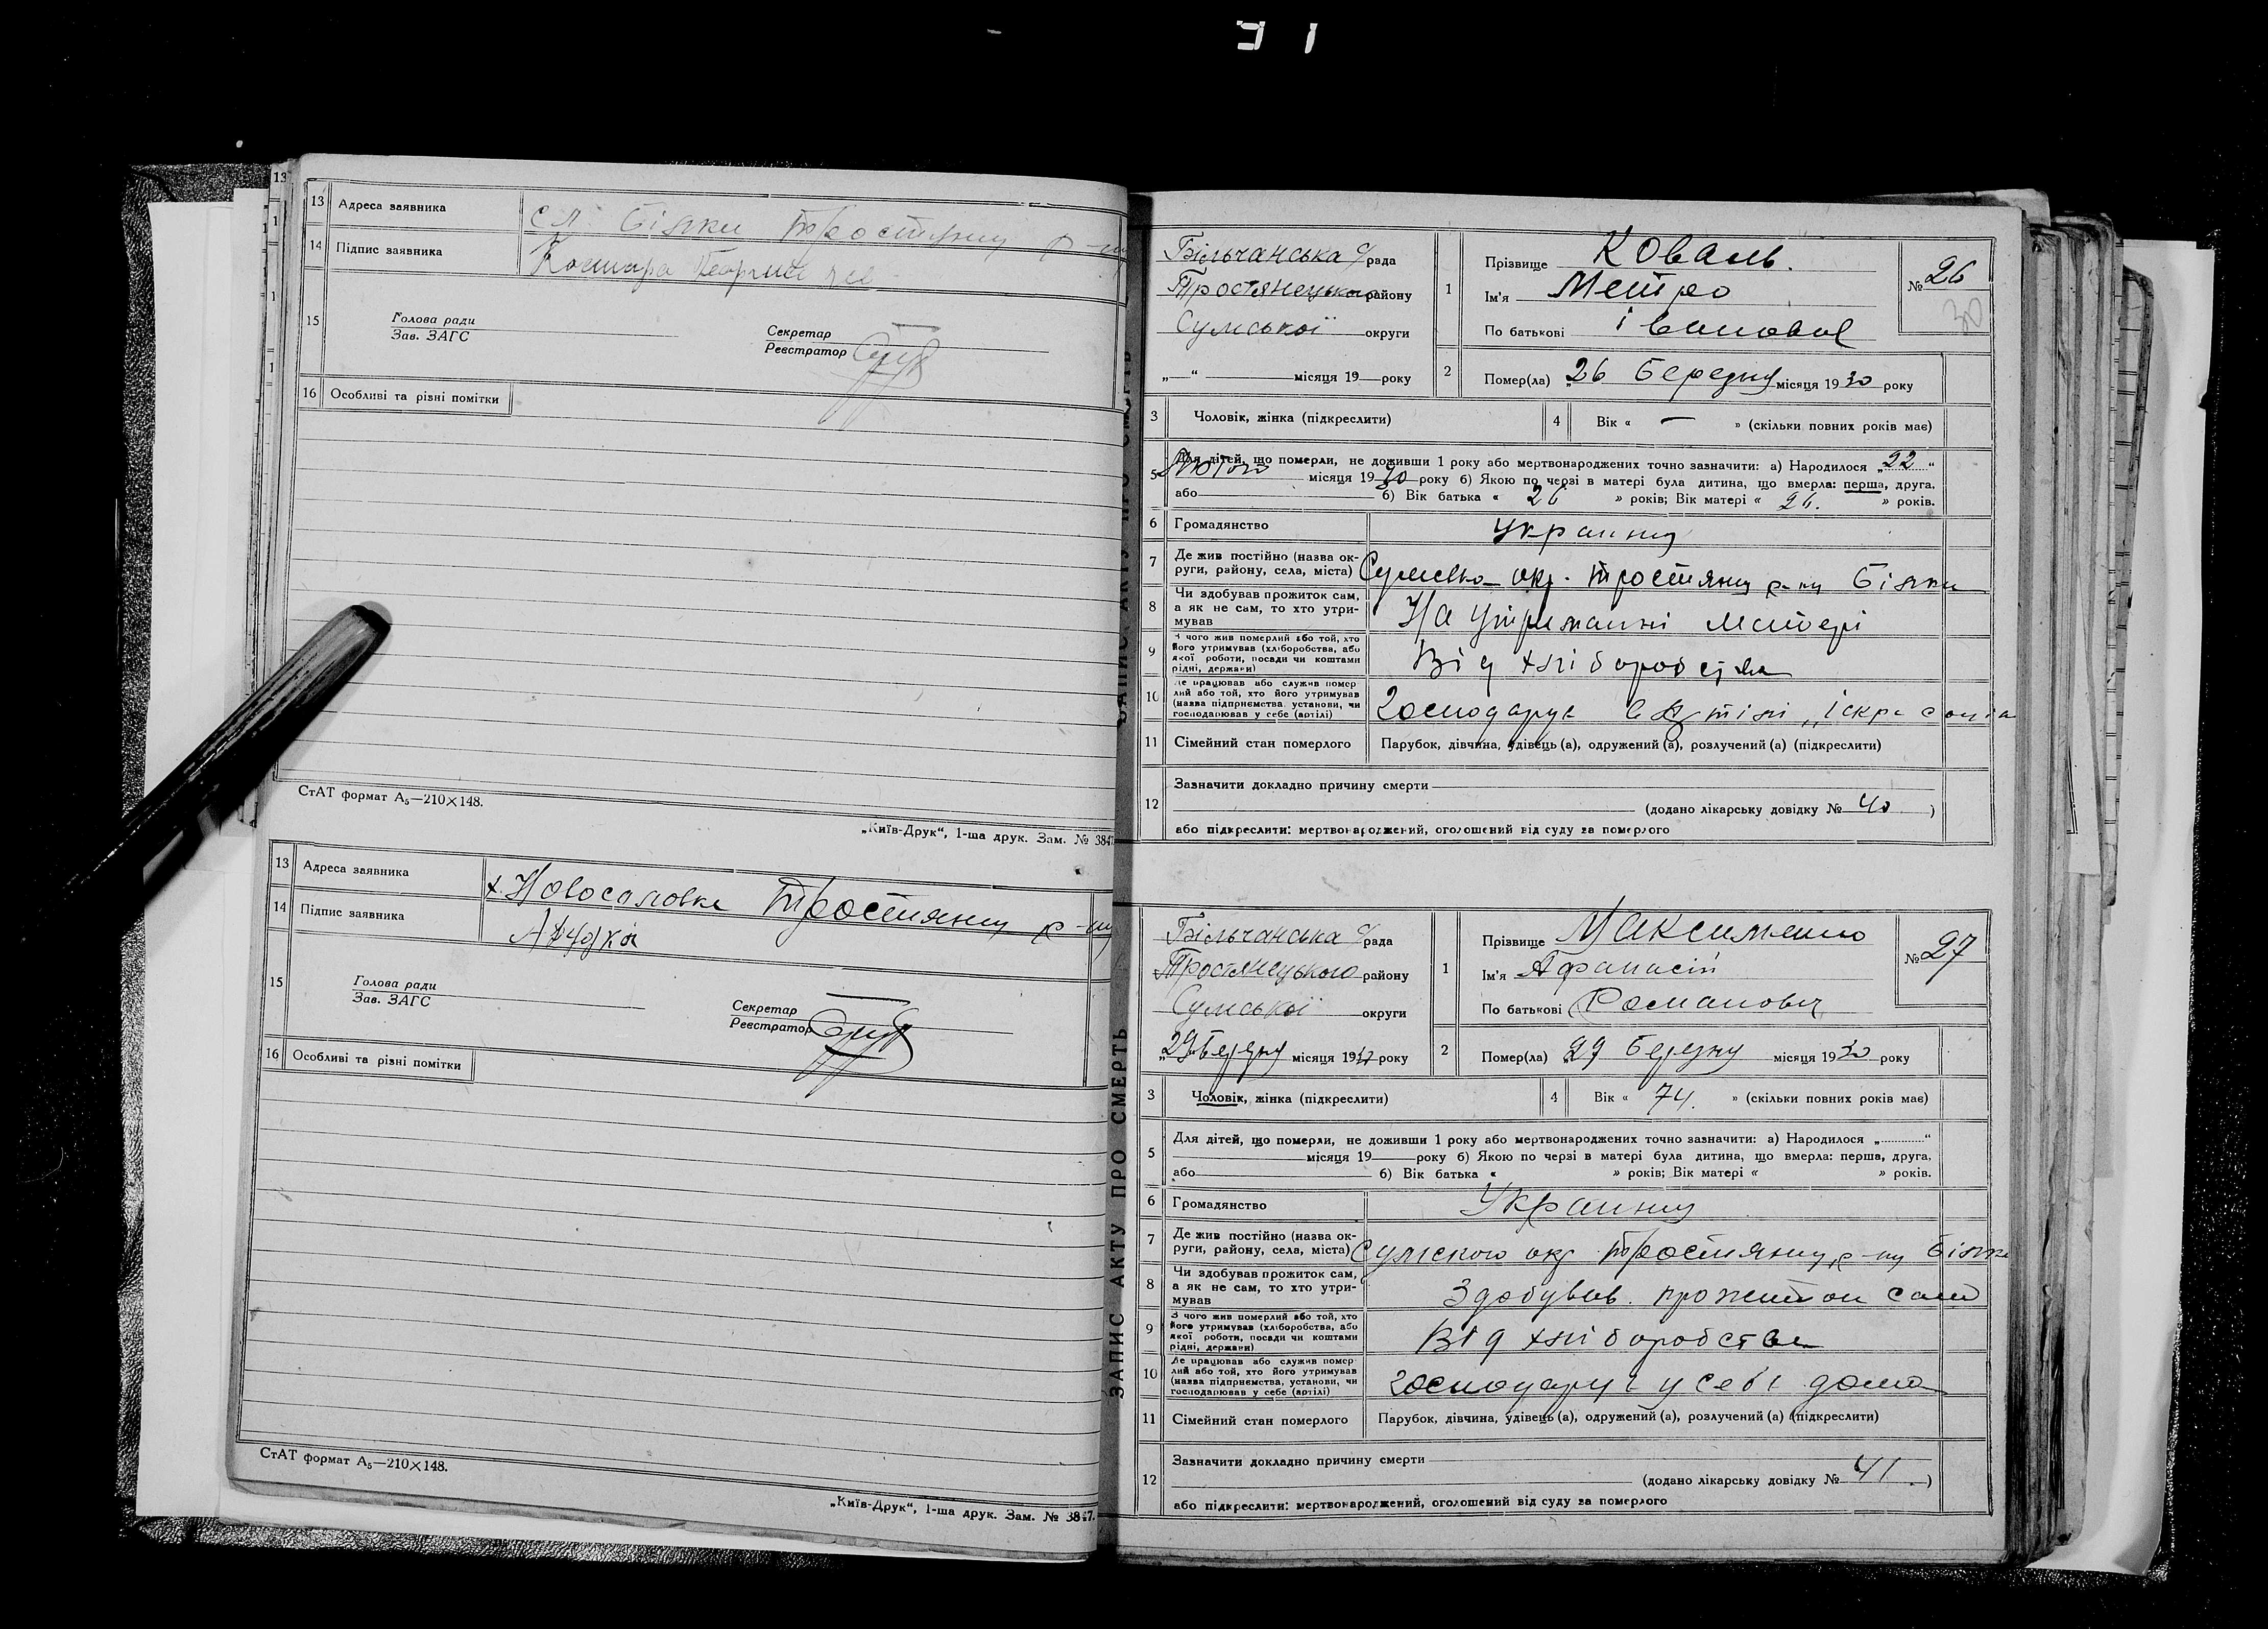 31
13
13 Адреса заявника сл. Білки Тростянец р-ну
14 Підпис заявника
15 Голова ради
Зав. ЗАГС
Секретар
Реєстратор
16 Особливі та різні помітки
СтАТ формат А₅—210×148.
„Київ-Друк“, 1-ша друк. Зам. № 3847
13 Адреса заявника х. Новоселовка Тростянец р-ну
14 Підпис заявника
15 Голова ради
Зав. ЗАГС
Секретар
Реєстратор
16 Особливі та різні помітки
СтАТ формат А₅—210×148.
„Київ-Друк“, 1-ша друк. Зам. № 3847.
ЗАПИС АКТУ ПРО СМЕРТЬ
Більчанська с/рада
Тростянецького району
Сумської округи
„—“ — місяця 19—року
1 Прізвище Коваль.
Ім'я Метро
По батькові Іванович
№ 26
30
2 Помер(ла) „26 березну місяця 1930 року
3 Чоловік, жінка (підкреслити)
4 Вік « — » (скільки повних років має)
5 Для дітей, що померли, не доживши 1 року або мертвонароджених точно зазначити: а) Народилося „22“
лютого місяця 1930 року б) Якою по черзі в матері була дитина, що вмерла: перша, друга,
або б) Вік батька « 26 » років; Вік матері « 26. » років.
6 Громадянство Украинец
7 Де жив постійно (назва округи, району, села, міста) Сумська окр. Тростянец р-ну Білки
8 Чи здобував прожиток сам,
а як не сам, то хто утримував На утриманні матері
9 З чого жив померлий або той, хто
його утримував (хліборобства, або
якої роботи, посади чи коштами
рідні, держави) Від хліборобства
10 Де працював або служив померлий або той, хто його утримував
(назва підприємства, установи, чи
господарював у себе (артілі) Господарує в артілі „Іскра
11 Сімейний стан померлого Парубок, дівчина, удівець (а), одружений (а), розлучений (а) (підкреслити)
12 Зазначити докладно причину смерти
(додано лікарську довідку № 40 )
або підкреслити: мертвонароджений, оголошений від суду за померлого
ЗАПИС АКТУ ПРО СМЕРТЬ
Більчанська с/рада
Тростянецького району
Сумської округи
„29“ березну місяця 1930 року
1 Прізвище Максименко
Ім'я Афанасій
По батькові Романович
№ 27
2 Помер(ла) „29 березну місяця 1930 року
3 Чоловік, жінка (підкреслити)
4 Вік « 74. » (скільки повних років має)
5 Для дітей, що померли, не доживши 1 року або мертвонароджених точно зазначити: а) Народилося „......“
місяця 19 року б) Якою по черзі в матері була дитина, що вмерла: перша, друга,
або б) Вік батька « » років; Вік матері « » років.
6 Громадянство Украинец
7 Де жив постійно (назва округи, району, села, міста) Сумского окр Тростянец р-ну Білки
8 Чи здобував прожиток сам,
а як не сам, то хто утримував Здобував прожиток сам
9 З чого жив померлий або той, хто
його утримував (хліборобства, або
якої роботи, посади чи коштами
рідні, держави) Від хліборобства
10 Де працював або служив померлий або той, хто його утримував
(назва підприємства, установи, чи
господарював у себе (артілі) Господарує у себе дома
11 Сімейний стан померлого Парубок, дівчина, удівець (а), одружений (а), розлучений (а) (підкреслити)
12 Зазначити докладно причину смерти
(додано лікарську довідку № 41 )
або підкреслити: мертвонароджений, оголошений від суду за померлого